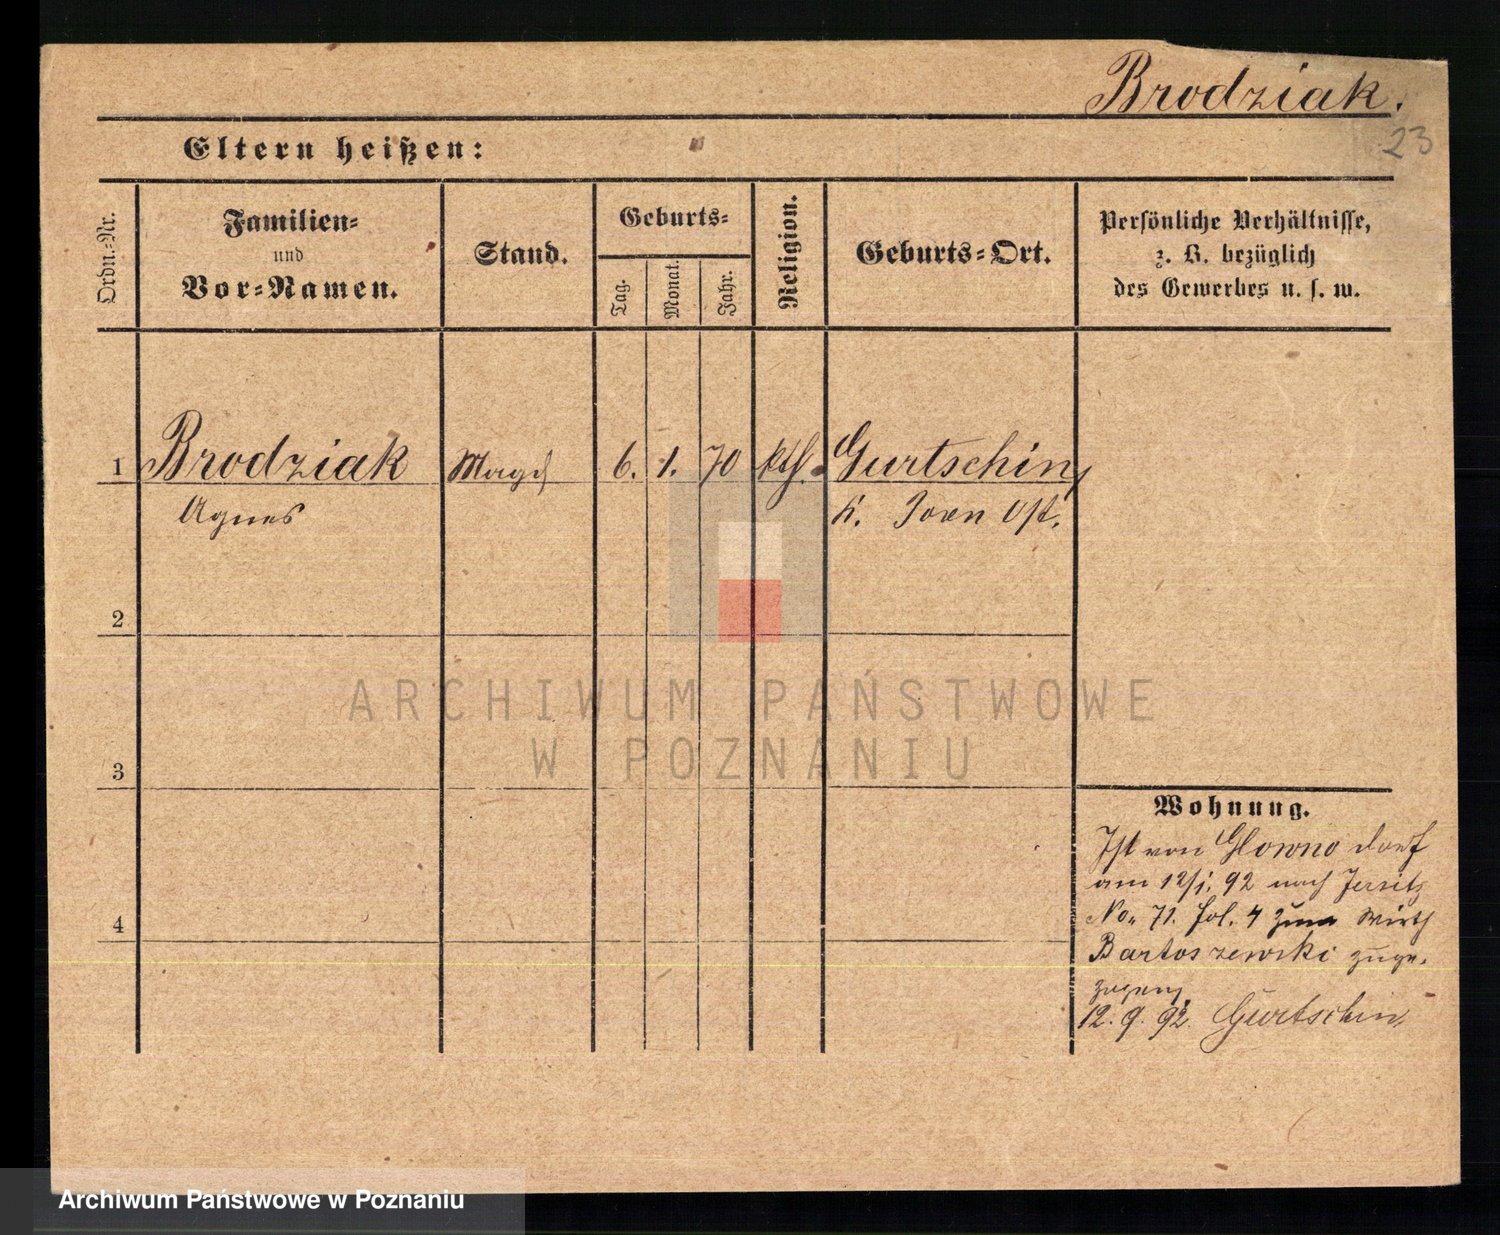 Brodziak.
23
Eltern heißen:
Ordn.-Nr.
Familien-
und
Vor-Namen.
Stand.
Geburts-
Tag.
Monat.
Jahr.
Religion.
Geburts-Ort.
Persönliche Verhältnisse,
z. B. bezüglich
des Gewerbes u. s. w.
1 Brodziak Magd 6. 1. 70 kth. Gurtschin,
Agnes K. Posen Ost.
2
3
4
Wohnung.
Ist von Glowno dorf
am 12/1. 92 nach Jersitz
No. 71. fol. 4 zum Wirth
Bartoszewski zuge-
zogen,
12. 9. 92. Gurtschin,
ARCHIWUM PAŃSTWOWE
W POZNANIU
Archiwum Państwowe w Poznaniu